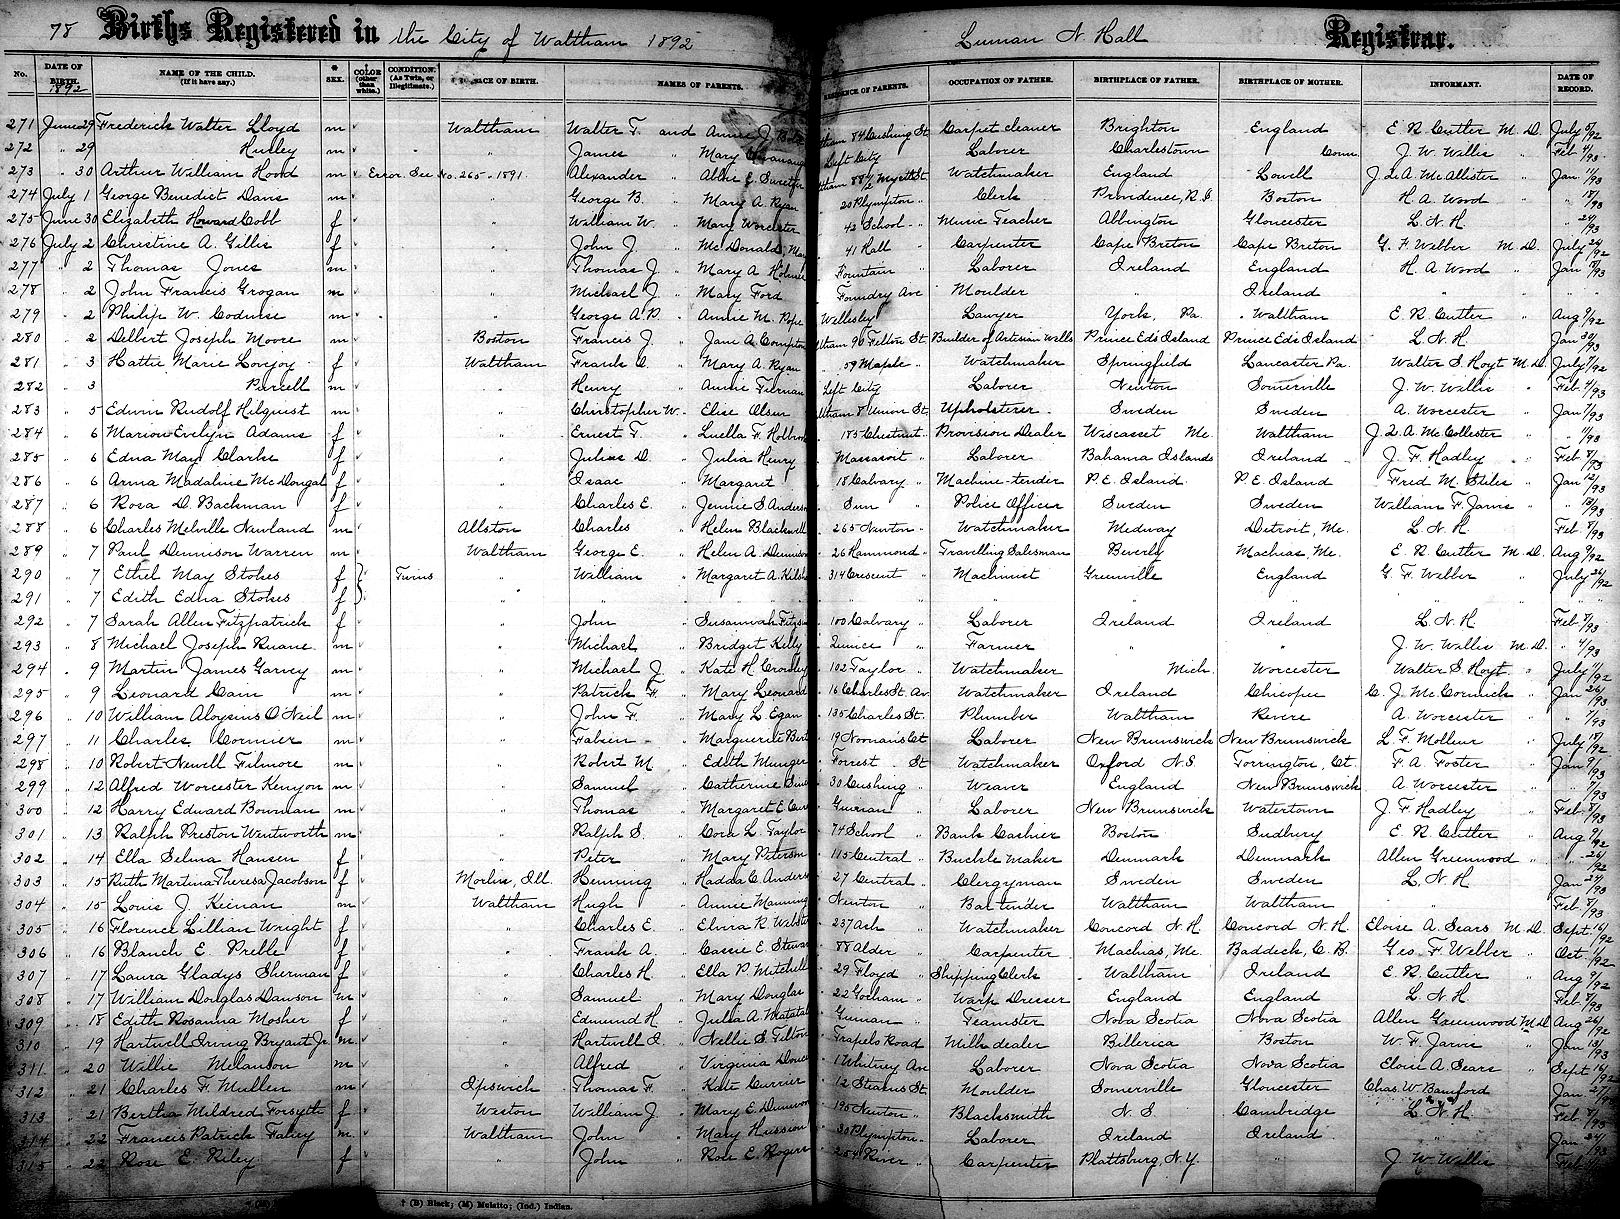 78 Births Registered in the City of Waltham 1892 Luman N. Hall Registrar.
No. DATE OF BIRTH. 1892 NAME OF THE CHILD. (If it have any.) * SEX. † COLOR (other than white.) CONDITION. (As Twin, or Illegitimate.) PLACE OF BIRTH. NAMES OF PARENTS. RESIDENCE OF PARENTS. OCCUPATION OF FATHER. BIRTHPLACE OF FATHER. BIRTHPLACE OF MOTHER. INFORMANT. DATE OF RECORD.
271 June 29 Frederick Walter Lloyd m Waltham Walter T. and Annie J. 84 Cushing St. Carpet cleaner Brighton England E. R. Cutler M.D. July 8/92
272 " 29 Hurley m " James " Mary Left City Laborer Charlestown Conn. J. W. Willis " Feb 4/93
273 " 30 Arthur William Hood m Error. See No. 265-1891. Alexander " Abbie E. 88 1/2 Myrtle St. Watchmaker England Lowell J. Q. A. McAllister " Jan 11/93
274 July 1 George Benedict Davis m " George B. " Mary A. Ryan 20 Plympton " Clerk Providence, R.I. Boston H. A. Wood " " 18/93
275 June 30 Elizabeth Howard Cobb f " William W. " Mary Worcester 43 School " Music Teacher Abbington Gloucester L. N. H. " 24/93
276 July 2 Christine A. Gillis f " John J. " McDonald, 41 Hall " Carpenter Cape Breton Cape Breton G. F. Webber M.D. July 24/92
277 " 2 Thomas Jones m " Thomas J. " Mary A. Holmes Fountain " Laborer Ireland England H. A. Wood " Jan 18/93
278 " 2 John Francis Grogan m " Michael J. " Mary Ford Foundry Ave Moulder " Ireland " " "
279 " 2 Philip W. m " George A. P. " Annie M. Pope Wellesley Lawyer York, Pa. Waltham E. R. Cutler " Aug 9/92
280 " 2 Delbert Joseph Moore m Boston Francis J. " Jane A. Compton 90 Felton St. Builder of Artesian Wells Prince Ed's Island Prince Ed's Island L. N. H. Jan 30/93
281 " 3 Hattie Marie Lovejoy f Waltham Frank C. " Mary A. Ryan 59 Maple " Watchmaker Springfield Lancaster Pa. Walter S. Hoyt M.D. July 7/92
282 " 3 Purcell m " Henry " Annie Left City Laborer Newton Somerville J. W. Willis " Feb. 4/93
283 " 5 Edwin Rudolf Hilquist m " Christopher W. " Elise Olsen 8 Union St. Upholsterer Sweden Sweden A. Worcester " Jan 7/93
284 " 6 Marion Evelyn Adams f " Ernest F. " Luella F. Holbrook 185 Chestnut " Provision Dealer Wiscasset Me. Waltham J. Q. A. McCollester " " 11/93
285 " 6 Edna May Clarke f " Julius D. " Julia Henry Massasoit " Laborer Bahama Islands Ireland J. F. Hadley " Feb 8/93
286 " 6 Anna Madaline McDougal f " Isaac " Margaret 18 Calvary " Machine-tender P.E. Island P.E. Island Fred M. Stiles " Jan 12/93
287 " 6 Rosa D. Backman f " Charles E. " Jennie S. Anderson Sun " Police Officer Sweden Sweden William F. Jarvis " " 13/93
288 " 6 Charles Melville Newland m Allston Charles " Helen Blackwell 265 Newton " Watchmaker Medway Detroit, Me. L. N. H. Feb 7/93
289 " 7 Paul Dennison Warren m Waltham George E. " Helen A. Dennison 26 Hammond " Travelling Salesman Beverly Machias, Me. E. R. Cutler M.D. Aug 9/92
290 " 7 Ethel May Stokes f Twins " William " Margaret A. 314 Crescent " Machinist Greenville England G. F. Webber " July 26/92
291 " 7 Edith Edna Stokes f " " " " " " " " "
292 " 7 Sarah Allen Fitzpatrick f " John " Susannah 100 Calvary " Laborer Ireland Ireland L. N. H. Feb. 7/93
293 " 8 Michael Joseph Ruane m " Michael " Bridget Kelly Quince " Farmer " " J. W. Willis M.D. " 4/93
294 " 9 Martin James Garvey m " Michael J. " Kate H. Crowley 102 Taylor " Watchmaker Mich. Worcester Walter S. Hoyt " July 11/92
295 " 9 Leonard Cain m " Patrick F. " Mary Leonard 16 Charles St. Av. Watchmaker Ireland Chicopee C. J. McCormick " Jan 26/93
296 " 10 William Aloysius O'Neil m " John F. " Mary L. Egan 135 Charles St. Plumber Waltham Revere A. Worcester " " 7/93
297 " 11 Charles Cormier m " Fabien " Marguerite 19 Noonan's Ct. Laborer New Brunswick New Brunswick L. F. Molleur " July 18/92
298 " 10 Robert Newell Filmore m " Robert M. " Edith Munger Forrest St Watchmaker Oxford N.S. Torrington, Ct. F. A. Foster " Jan 9/93
299 " 12 Alfred Worcester Kenyon m " Samuel " Catherine 30 Cushing " Weaver England New Brunswick A. Worcester " " 7/93
300 " 12 Harry Edward Bowman m " Thomas " Margaret E. " Laborer New Brunswick Watertown J. F. Hadley " Feb 8/93
301 " 13 Ralph Preston Wentworth m " Ralph S. " Cora L. Taylor 74 School " Bank Cashier Boston Sudbury E. R. Cutler " Aug 9/92
302 " 14 Ella Selma Hansen f " Peter " Mary Peterson 115 Central " Buckle Maker Denmark Denmark Allen Greenwood " " 26/92
303 " 15 Ruth Martina Theresa Jacobson f Morlin, Ill. Henning " Hadda C. Anders 27 Central " Clergyman Sweden Sweden L. N. H. Jan 24/93
304 " 15 Louis J. Keenan m Waltham Hugh " Annie Manning Newton " Bartender Waltham Waltham " Feb. 8/93
305 " 16 Florence Lillian Wright f " Charles E. " Elvira R. Webster 237 Ash " Watchmaker Concord N.H. Concord N.H. Eloise A. Sears M.D. Sept 16/92
306 " 16 Blanch E. Preble f " Frank A. " Cassie E. Stewar 88 Alder " Carpenter Machias, Me. Baddeck, C.B. Geo. F. Webber " Oct. /92
307 " 17 Laura Gladys Sherman f " Charles H. " Ella P. Mitchell 29 Floyd " Shipping Clerk Waltham Ireland E. R. Cutler " Aug 9/92
308 " 17 William Douglas Dawson m " Samuel " Mary Douglas 22 Gorham " Warp Dresser England England L. N. H. Feb. 7/93
309 " 18 Edith Rosanna Mosher f " Edmund H. " Julia A. " Teamster Nova Scotia Nova Scotia Allen Greenwood M.D. Aug 26/92
310 " 19 Hartwell Irving Bryant Jr. m " Hartwell I. " Nellie S. Felton Trapelo Road Milk dealer Billerica Boston W. F. Jarvis " Jan 13/93
311 " 20 Willie Melanson m " Alfred " Virginia 1 Whitney Ave Laborer Nova Scotia Nova Scotia Eloise A. Sears " Sept 16/92
312 " 21 Charles F. Mullen m Ipswich Thomas F. " Kate Currier 12 Stearns St. Moulder Somerville Gloucester Chas. W. Bamford Jan 27/93
313 " 21 Bertha Mildred Forsyth f Weston William J. " Mary E. 195 Newton " Blacksmith N.S. Cambridge L. N. H. Feb. 8/93
314 " 22 Francis Patrick Fahey m Waltham John " Mary Hussion 30 Plympton " Laborer Ireland Ireland " Jan 24/93
315 " 22 Rose E. Riley f " John " Rose E. Rogers 204 River " Carpenter Plattsburg, N.Y. " J. W. Willis Feb.
† (B) Black; (M) Mulatto; (Ind.) Indian.